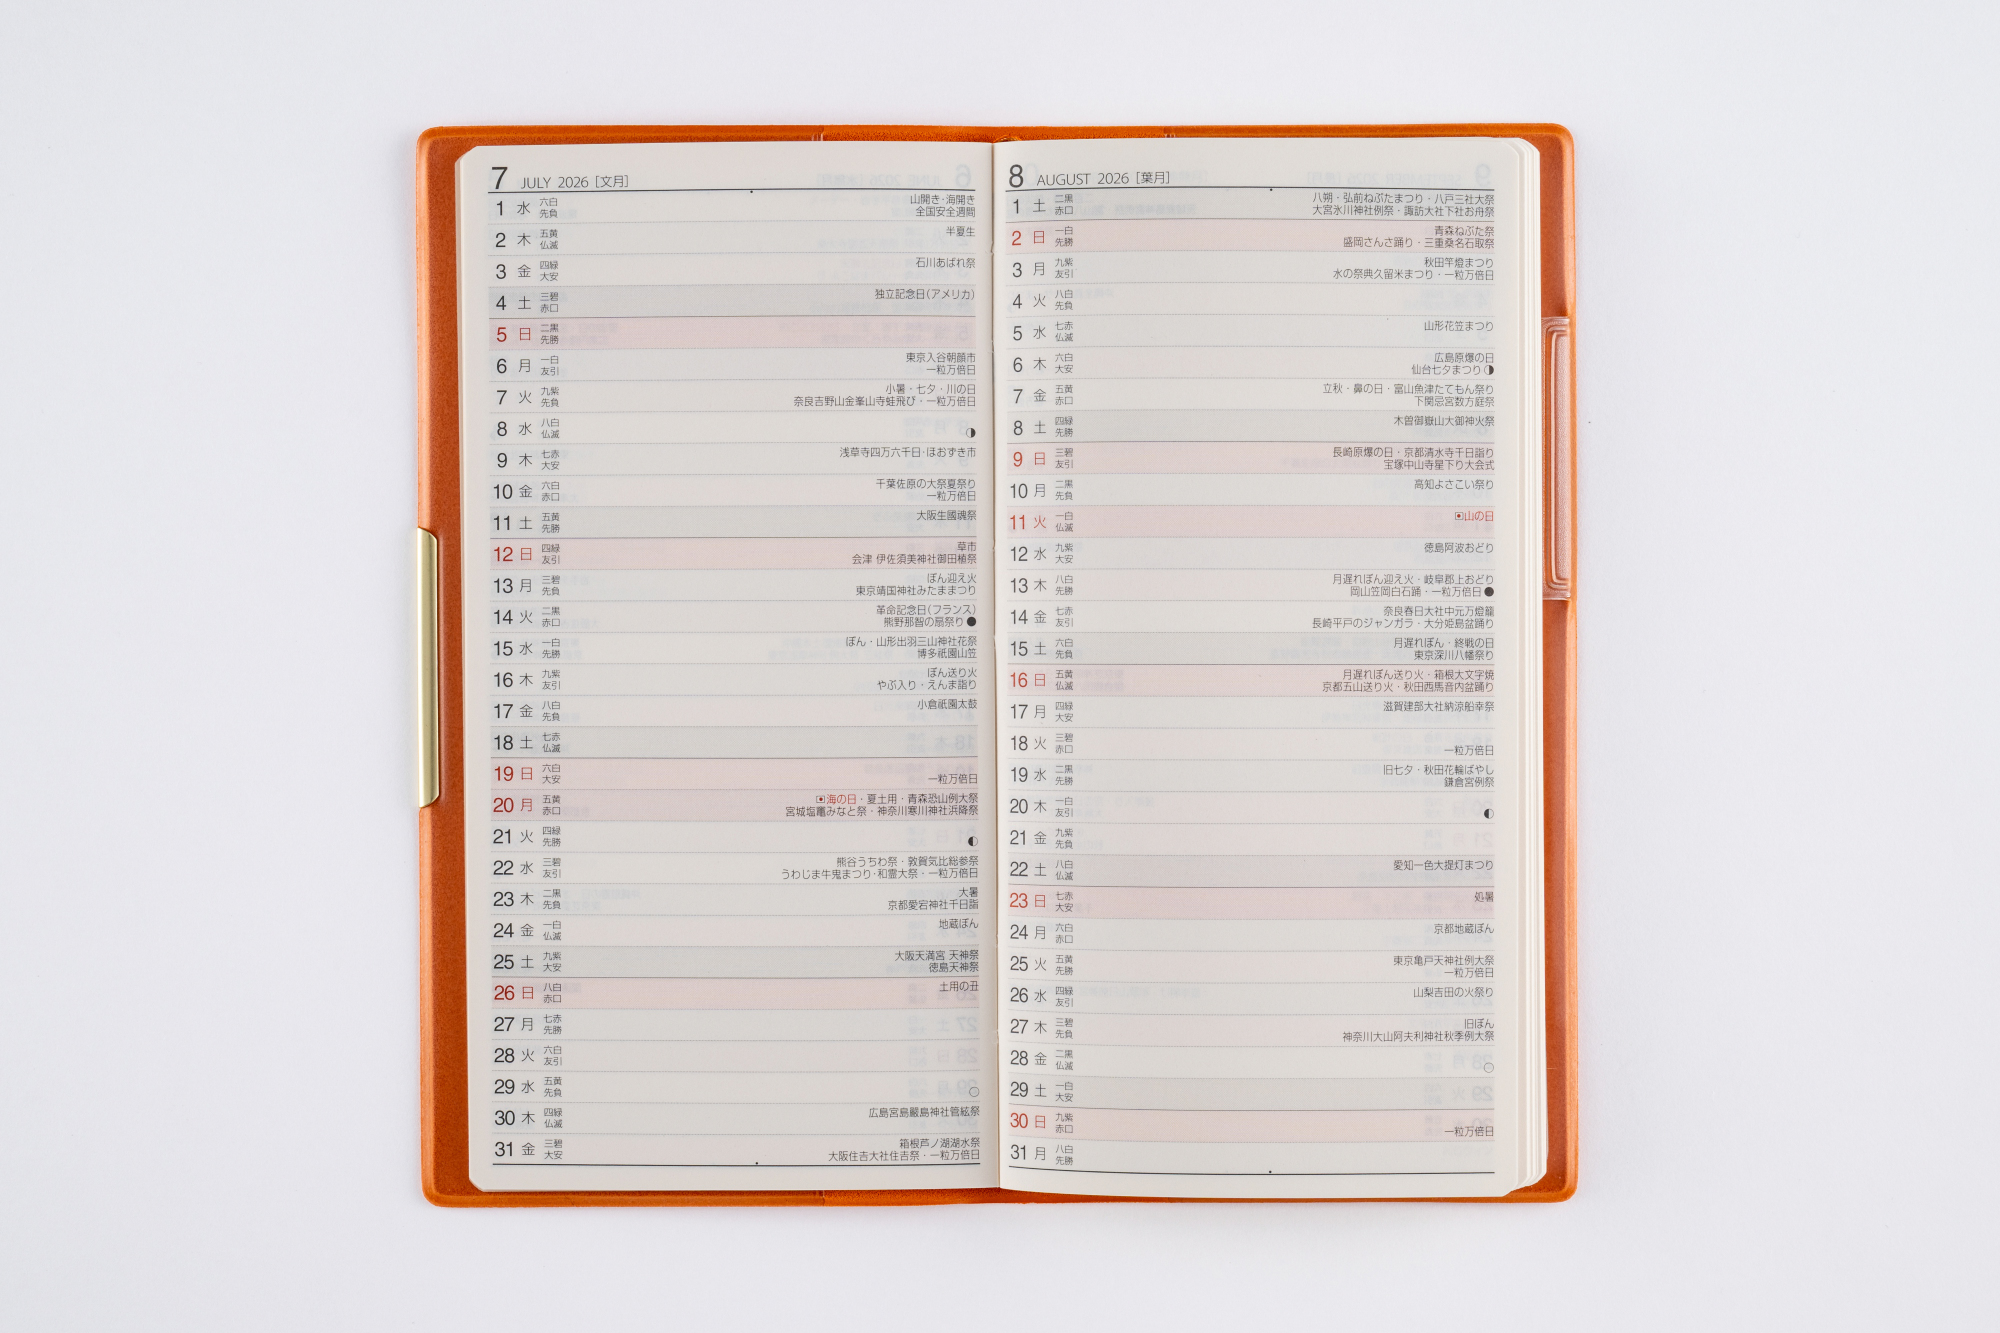 7 JULY 2026 [文月]
1 水 六白 山開き・海開き
先負 全国安全週間
2 木 五黄 半夏生
仏滅
3 金 四緑 石川あばれ祭
大安
4 土 三碧 独立記念日(アメリカ)
赤口
5 日 二黒
先勝
6 月 一白 東京入谷朝顔市
友引 一粒万倍日
7 火 九紫 小暑・七夕・川の日
先負 奈良吉野山金峯山寺蛙飛び・一粒万倍日
8 水 八白
仏滅
9 木 七赤 浅草寺四万六千日・ほおずき市
大安
10 金 六白 千葉佐原の大祭夏祭り
赤口 一粒万倍日
11 土 五黄 大阪生國魂祭
先勝
12 日 四緑 草市
友引 会津 伊佐須美神社御田植祭
13 月 三碧 ぼん迎え火
先負 東京靖国神社みたままつり
14 火 二黒 革命記念日(フランス)
赤口 熊野那智の扇祭り
15 水 一白 ぼん・山形出羽三山神社花祭
先勝 博多祇園山笠
16 木 九紫 ぼん送り火
友引 やぶ入り・えんま詣り
17 金 八白 小倉祇園太鼓
先負
18 土 七赤
仏滅
19 日 六白
大安 一粒万倍日
20 月 五黄 海の日・夏土用・青森恐山例大祭
赤口 宮城塩竈みなと祭・神奈川寒川神社浜降祭
21 火 四緑
先勝
22 水 三碧 熊谷うちわ祭・敦賀気比総参祭
友引 うわじま牛鬼まつり・和霊大祭・一粒万倍日
23 木 二黒 大暑
先負 京都愛宕神社千日詣
24 金 一白 地蔵ぼん
仏滅
25 土 九紫 大阪天満宮 天神祭
大安 徳島天神祭
26 日 八白 土用の丑
赤口
27 月 七赤
先勝
28 火 六白
友引
29 水 五黄
先負
30 木 四緑 広島宮島嚴島神社管絃祭
仏滅
31 金 三碧 箱根芦ノ湖湖水祭
大安 大阪住吉大社住吉祭・一粒万倍日
8 AUGUST 2026 [葉月]
1 土 二黒 八朔・弘前ねぷたまつり・八戸三社大祭
赤口 大宮氷川神社例祭・諏訪大社下社お舟祭
2 日 一白 青森ねぶた祭
先勝 盛岡さんさ踊り・三重桑名石取祭
3 月 九紫 秋田竿燈まつり
友引 水の祭典久留米まつり・一粒万倍日
4 火 八白
先負
5 水 七赤 山形花笠まつり
仏滅
6 木 六白 広島原爆の日
大安 仙台七夕まつり
7 金 五黄 立秋・鼻の日・富山魚津たてもん祭り
赤口 下関忌宮数方庭祭
8 土 四緑 木曽御嶽山大御神火祭
先勝
9 日 三碧 長崎原爆の日・京都清水寺千日詣り
友引 宝塚中山寺星下り大会式
10 月 二黒 高知よさこい祭り
先負
11 火 一白 山の日
仏滅
12 水 九紫 徳島阿波おどり
大安
13 木 八白 月遅れぼん迎え火・岐阜郡上おどり
先勝 岡山笠岡白石踊・一粒万倍日
14 金 七赤 奈良春日大社中元万燈籠
友引 長崎平戸のジャンガラ・大分姫島盆踊り
15 土 六白 月遅れぼん・終戦の日
先負 東京深川八幡祭り
16 日 五黄 月遅れぼん送り火・箱根大文字焼
仏滅 京都五山送り火・秋田西馬音内盆踊り
17 月 四緑 滋賀建部大社納涼船幸祭
大安
18 火 三碧
赤口 一粒万倍日
19 水 二黒 旧七夕・秋田花輪ばやし
先勝 鎌倉宮例祭
20 木 一白
友引
21 金 九紫
先負
22 土 八白 愛知一色大提灯まつり
仏滅
23 日 七赤 処暑
大安
24 月 六白 京都地蔵ぼん
赤口
25 火 五黄 東京亀戸天神社例大祭
先勝 一粒万倍日
26 水 四緑 山梨吉田の火祭り
友引
27 木 三碧 旧ぼん
先負 神奈川大山阿夫利神社秋季例大祭
28 金 二黒
仏滅
29 土 一白
大安
30 日 九紫
赤口 一粒万倍日
31 月 八白
先勝